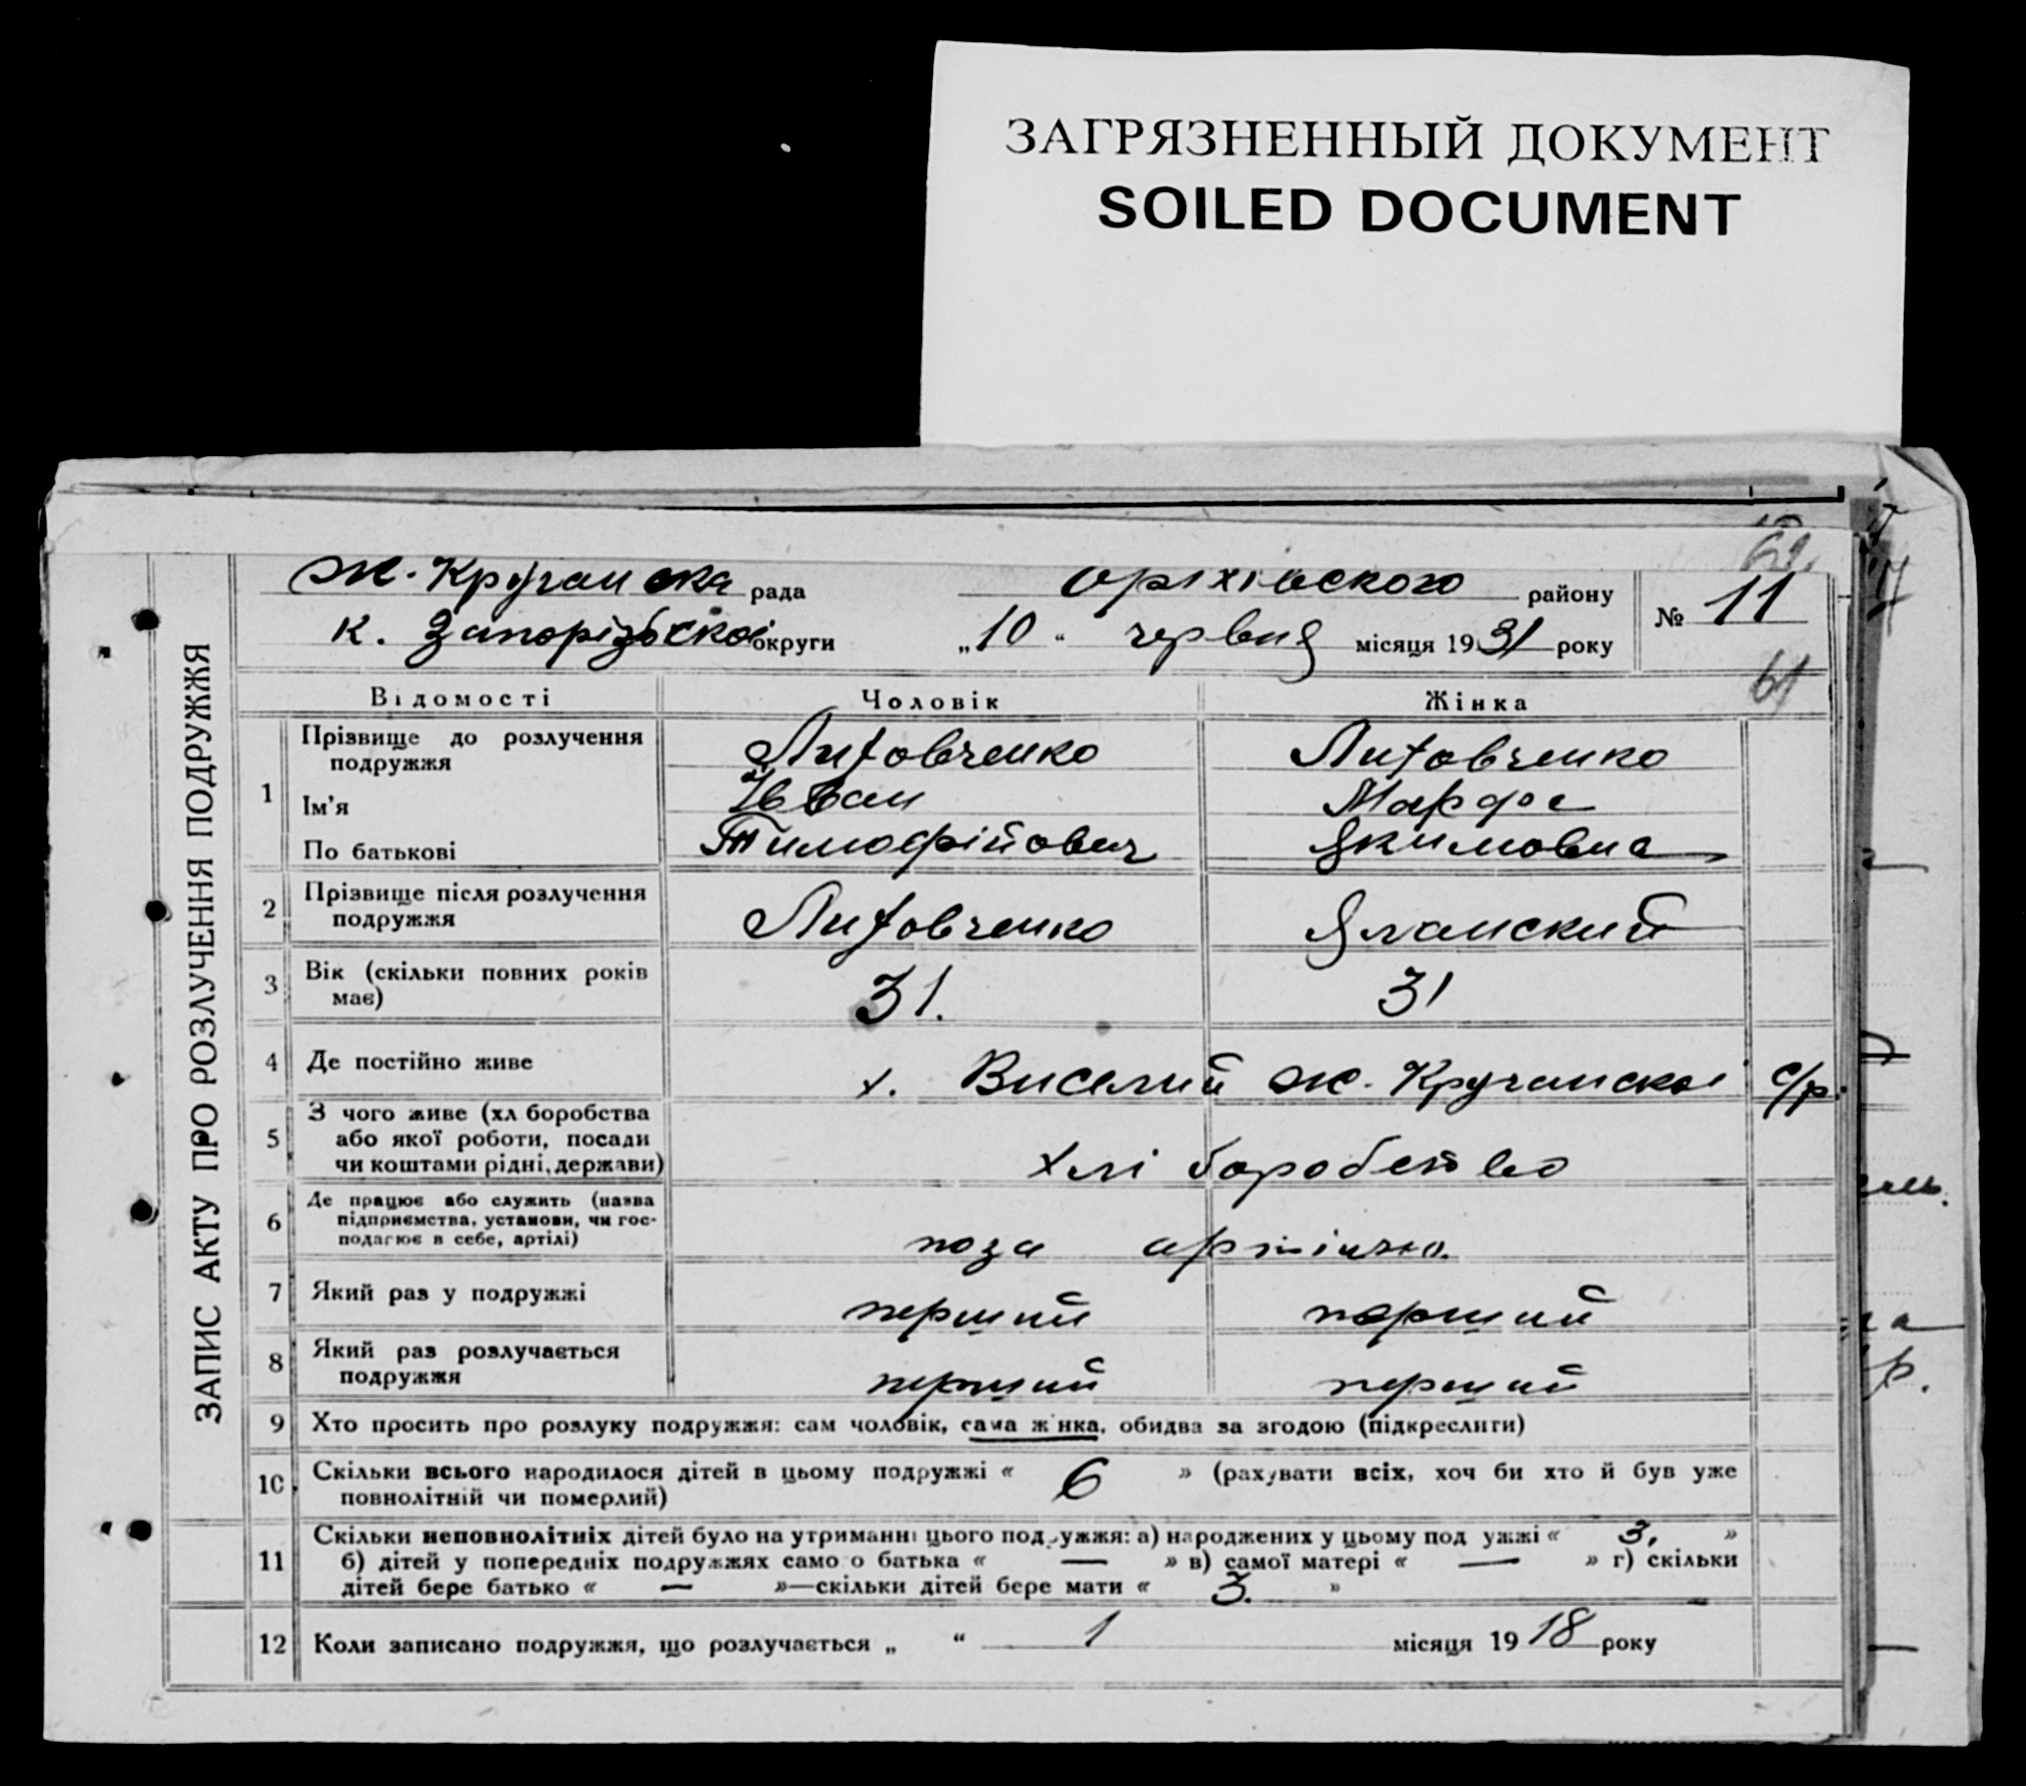 ЗАГРЯЗНЕННЫЙ ДОКУМЕНТ
SOILED DOCUMENT
62.
Ж. Кручанска рада Оріхівского району № 11
к. Запорізької округи „10“ червня місяця 1931 року
61
ЗАПИС АКТУ ПРО РОЗЛУЧЕННЯ ПОДРУЖЖЯ
Відомості Чоловік Жінка
1 Прізвище до розлучення подружжя Литовченко Литовченко
Ім'я Іван Марфа
По батькові Тимофійович Якимовна
2 Прізвище після розлучення
подружжя Литовченко Яланский
3 Вік (скільки повних років
має) 31. 31
4 Де постійно живе х. Виселий Ж. Кручанскої с/р.
5 З чого живе (хл боробства
або якої роботи, посади
чи коштами рідні, держави) хліборобство
6 Де працює або служить (назва
підприємства, установи, чи гос-
подарює в себе, артілі) поза
7 Який раз у подружжі перший перший
8 Який раз розлучається
подружжя перший перший
9 Хто просить про розлуку подружжя: сам чоловік, сама жінка, обидва за згодою (підкреслити)
10 Скільки всього народилося дітей в цьому подружжі « 6 » (рахувати всіх, хоч би хто й був уже
повнолітній чи померлий)
11 Скільки неповнолітніх дітей було на утриманні цього подружжя: а) народжених у цьому под ужжі « 3. »
б) дітей у попередніх подружжях само о батька « — » в) самої матері « — » г) скільки
дітей бере батько « — »—скільки дітей бере мати « 3. »
12 Коли записано подружжя, що розлучається „ “ 1 місяця 1918 року